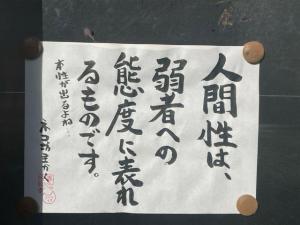 人間性は、
弱者への
態度に表れ
るものです。
本性が出るよね